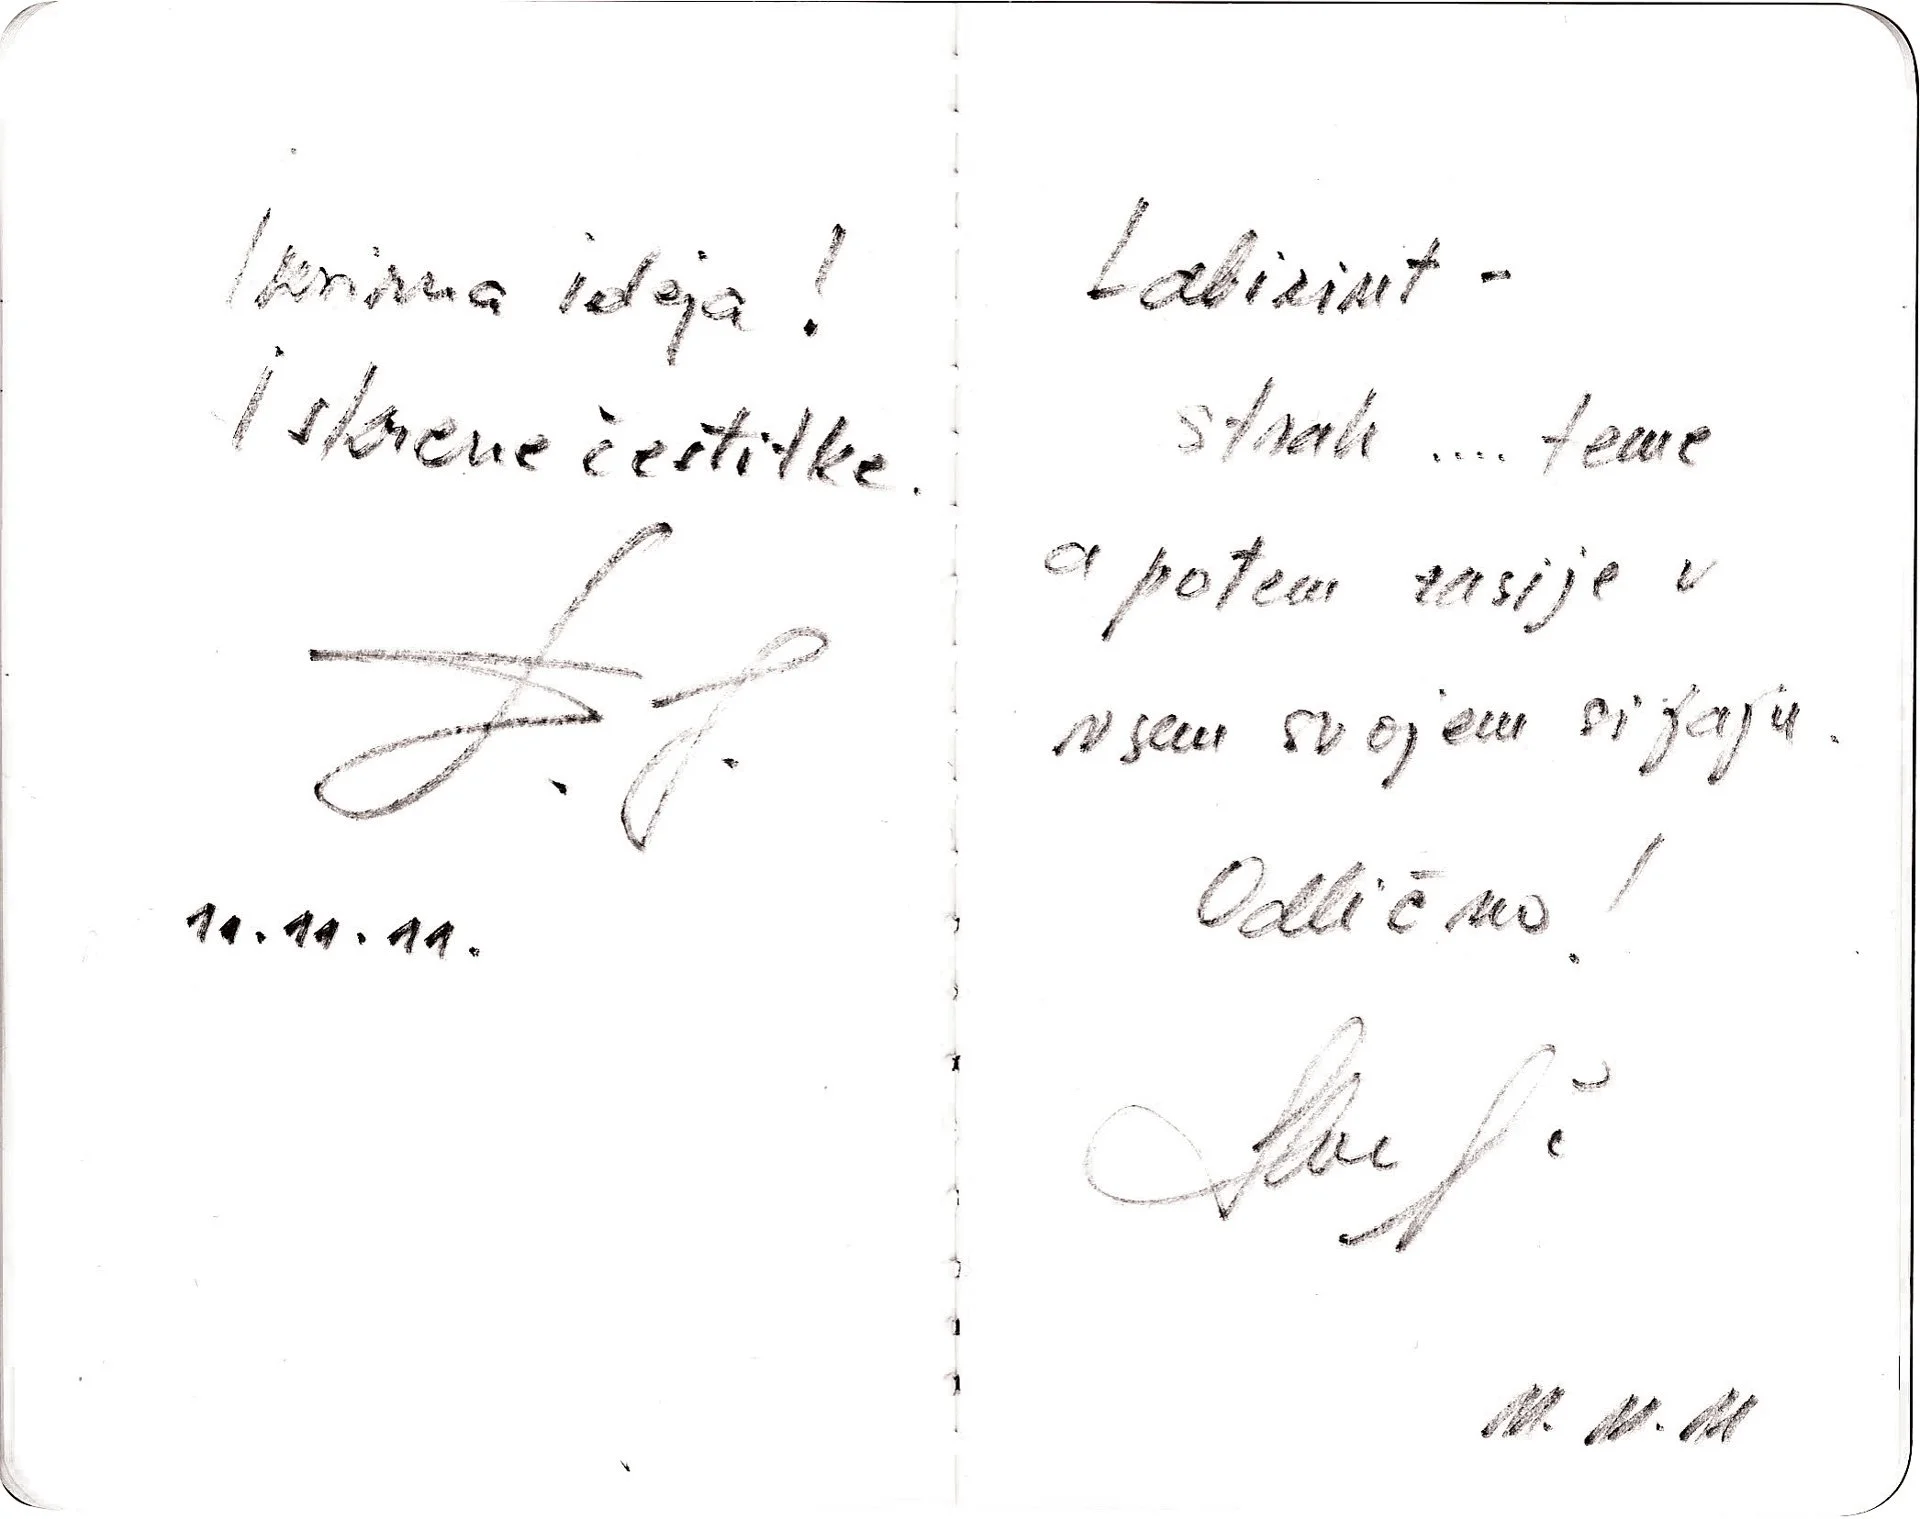 Izvirna ideja!
Iskrene čestitke.
11.11.11.
Labirint -
strah .... teme
a potem zasije v
vsem svojem sijaju.
Odlično!
11.11.11